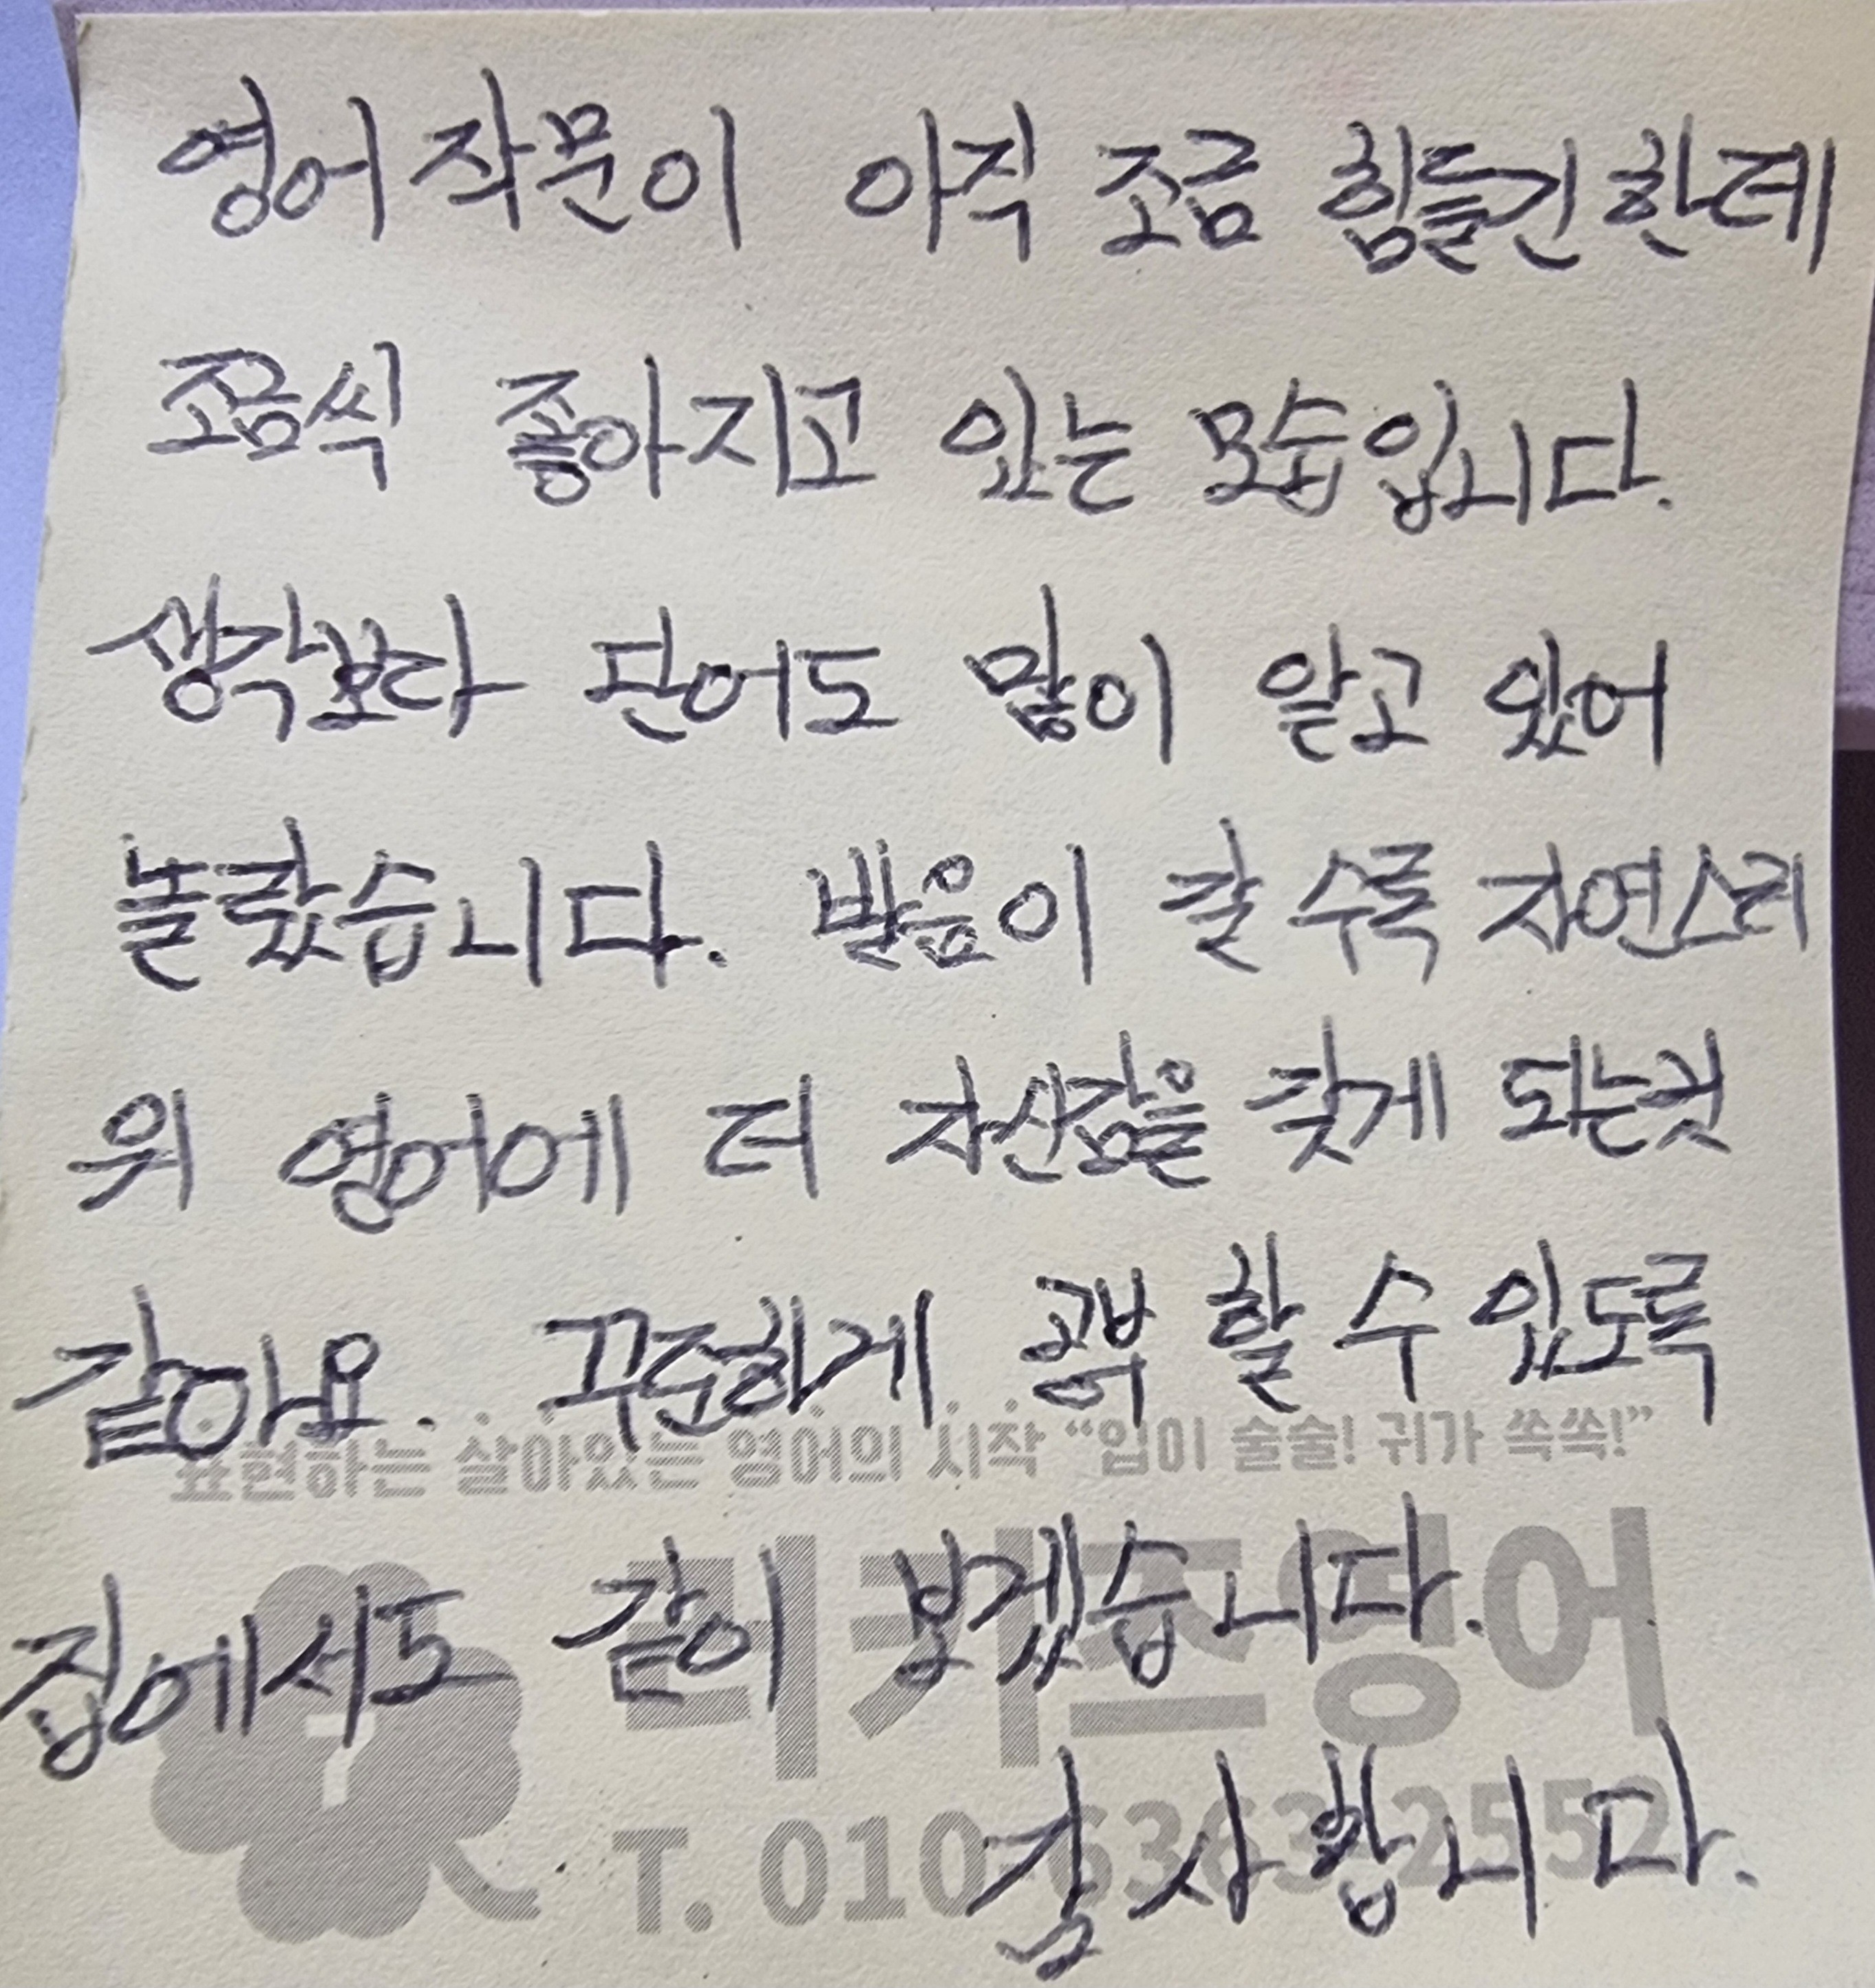 영어 작문이 아직 조금 힘들긴한데
조금씩 좋아지고 있는 모습입니다.
생각보다 단어도 많이 알고 있어
놀랐습니다. 발음이 갈 수록 자연스러
워 영어에 더 자신감을 갖게 되는것
같아요. 꾸준하게 공부 할 수 있도록
표현하는 살아있는 영어의 시작 “입이 술술! 귀가 쏙쏙!”
집에서도 같이 보겠습니다.
리키즈영어
감사합니다.
T. 010-6363-2552